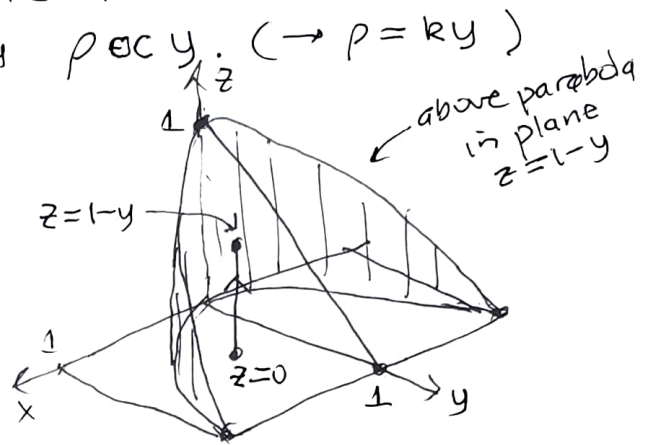 ρ ∝ y. (→ ρ = ky)
z
1
above parabola
in plane
z=1-y
z=1-y
1
z=0
x
1
y